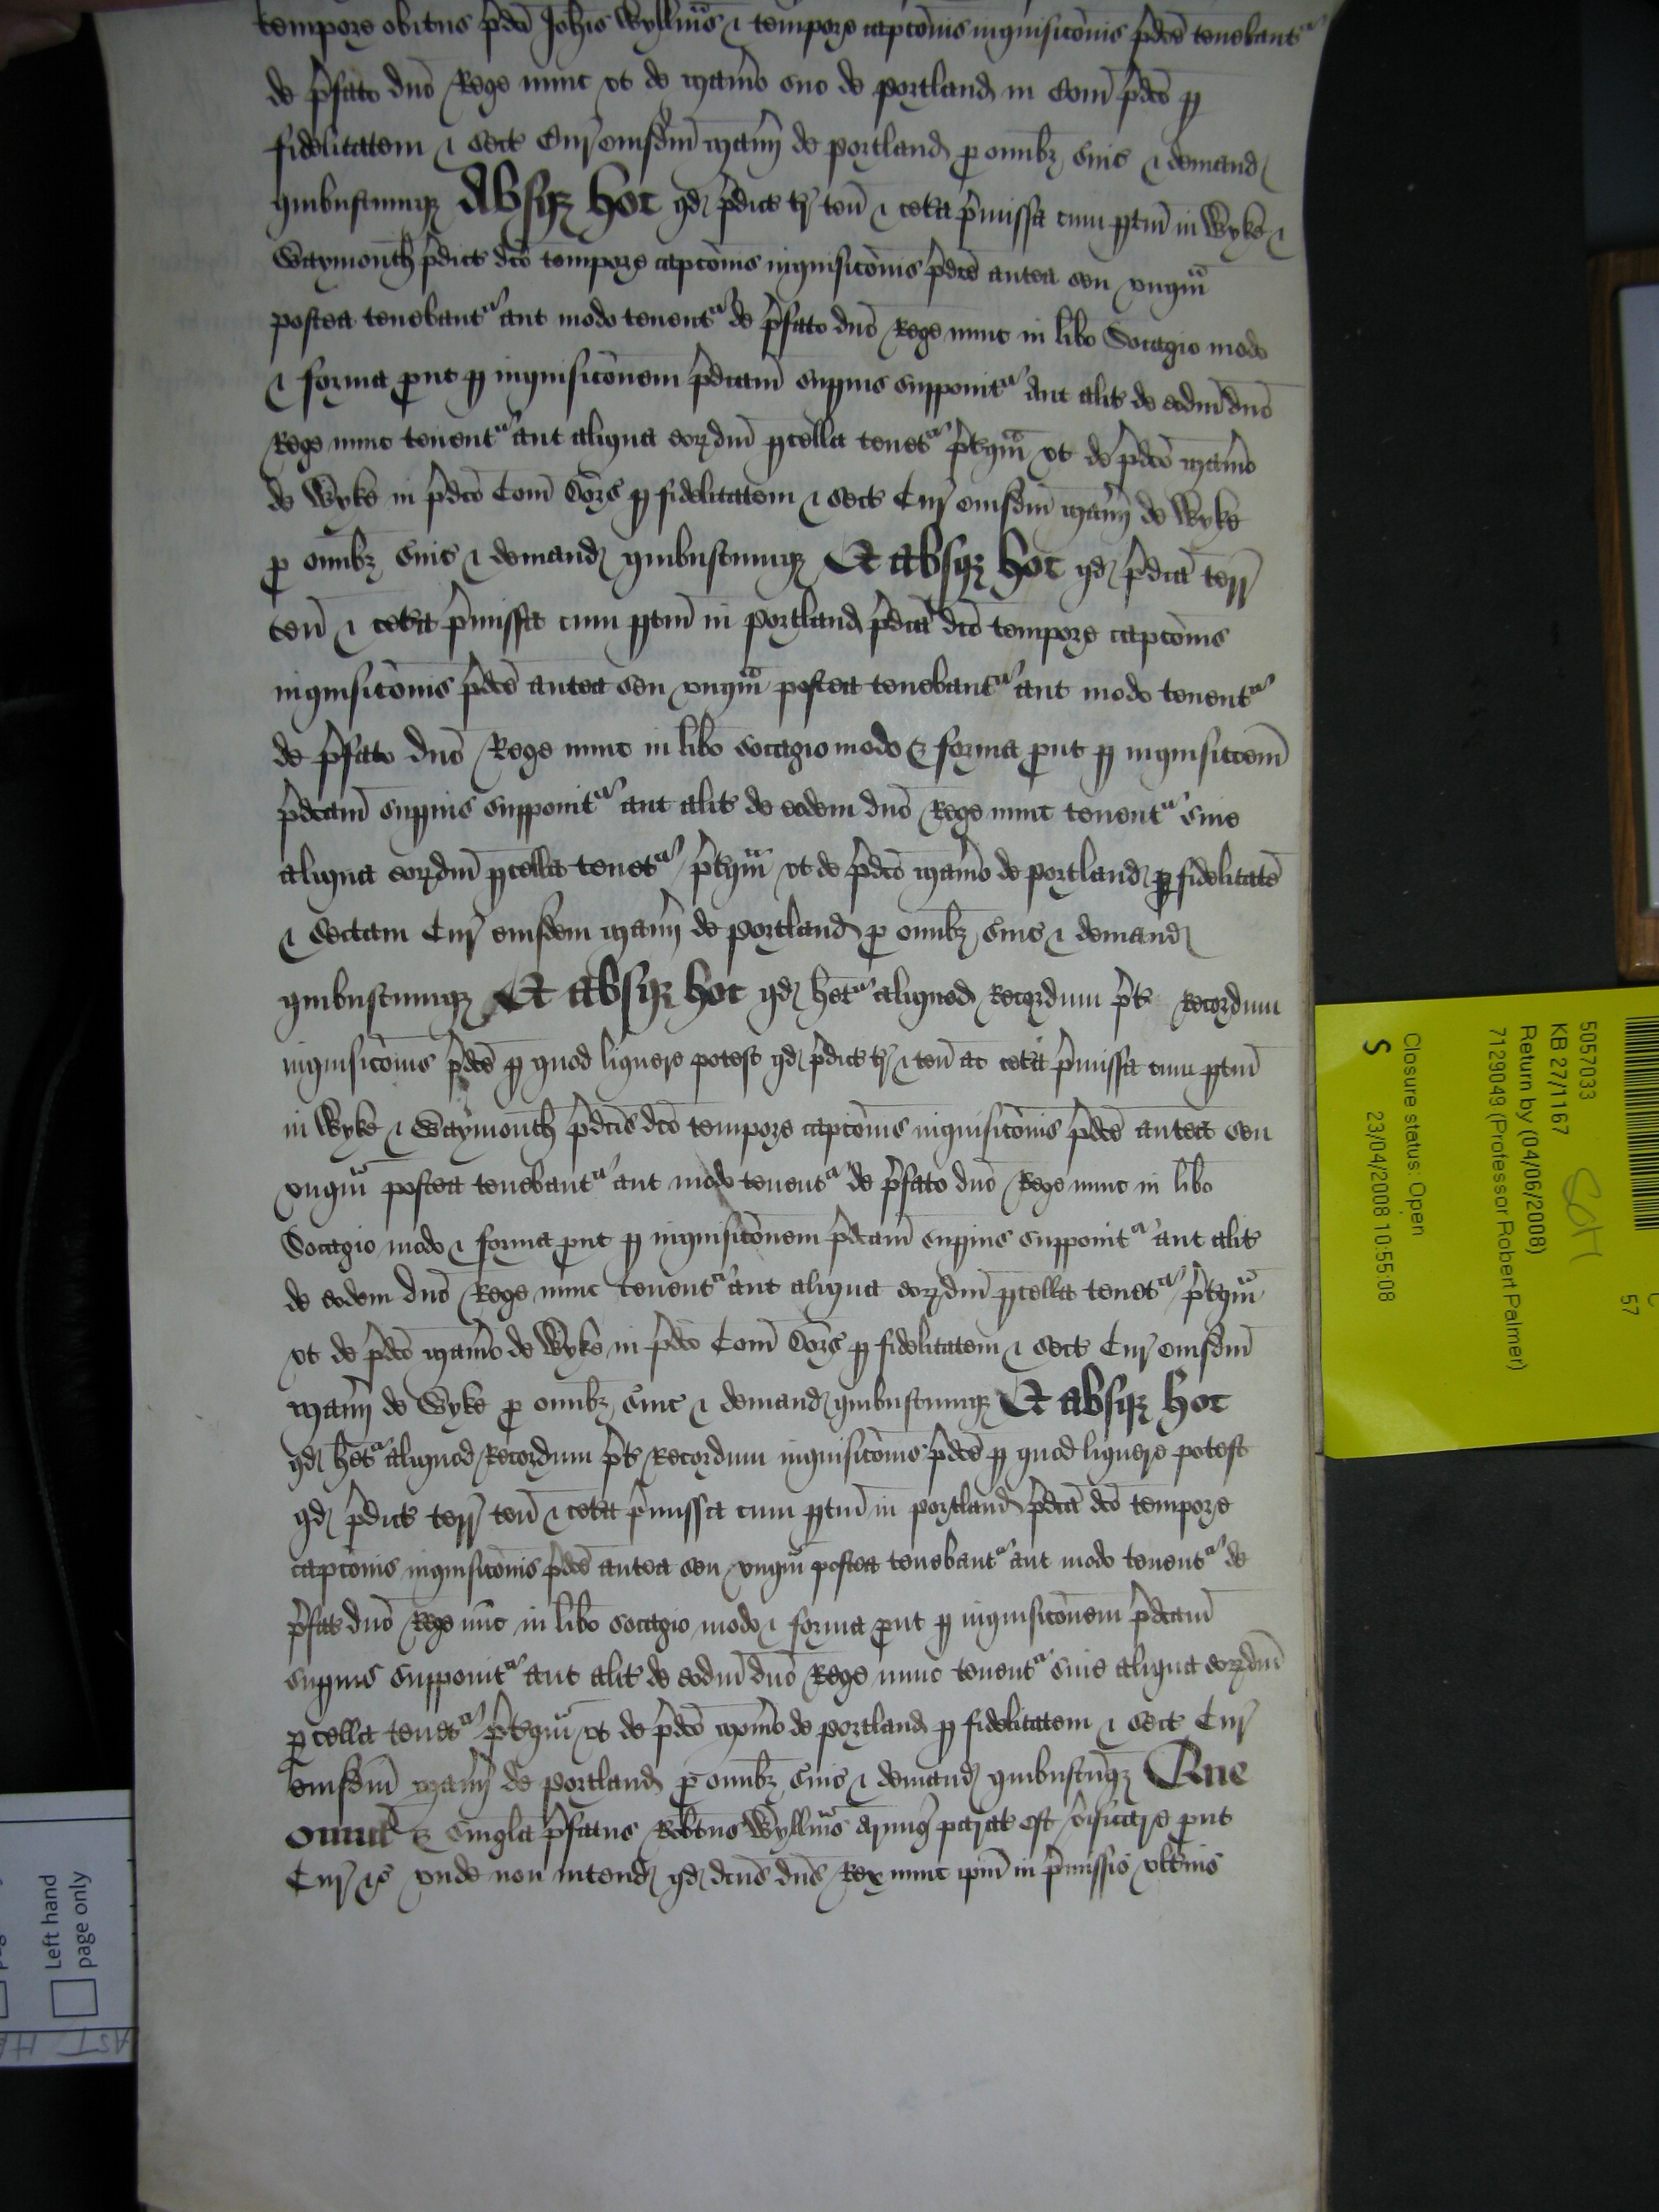 tempore obitus p̄dcī Joħis Wyllm̄s & tempore capcōnis inquisicōnis p̄dcē tenebantʳ
de p̄fato dnō Rege nunc vt de man̄io suo de portland in Com̄ p̄dcō p
fidelitatem & sect Cur eiusdm̄ man̄ij de portland p om̄ibȝ s̄uic & demand
quibuscumqȝ Absqȝ hoc qd p̄dict tr̄ ten̄ & cet̄a p̄missa cum ptin̄ in Wyke &
Waymouth p̄dict dcō tempore capcōnis inquisicōnis p̄dcē antea seu vnqm̄
postea tenebantʳ aut modo tenentʳ de p̄fato dnō Rege nunc in lib̄o Socagio modo
& forma put p inquisicōnem p̄dcam̄ supius supponitʳ Aut alit̄ de eodm̄ dnō
Rege nunc tenentʳ aut aliqua eorȝdm̄ pcella tenetʳ p̄t̄qm̄ vt de p̄dcō man̄io
de Wyke in p̄dcō Com̄ Dors p fidelitatem & sect Cur eiusdm̄ man̄ij de Wyke
p om̄ibȝ s̄uic & demand quibuscumqȝ Et absqȝ hoc qd p̄dicā terr̄
ten̄ & cet̄a p̄missa cum ptin̄ in portland p̄dicā dcō tempore capcōnis
inquisicōnis p̄dcē antea seu vnqm̄ postea tenebantʳ aut modo tenentʳ
de p̄fato dnō Rege nunc in lib̄o socagio modo & forma put p inquisiccem̄
p̄dcam̄ supius supponitʳ aut alit̄ de eodem dnō Rege nunc tenentʳ siue
aliqua eorȝdm̄ pcella tenetʳ p̄t̄qm̄ vt de p̄dcō man̄io de portland p fidelitatē
& sectam Cur eiusdem man̄ij de portland p om̄ibȝ s̄uic & demand
quibuscumqȝ Et absqȝ hoc qd het̄ʳ aliquod Recordum p̄t̄ Recordum
inquisicōnis p̄dcē p quod liquere potest qd p̄dict tr̄ & ten̄ ac cet̄a p̄missa cum ptin̄
in Wyke & Waymouth p̄dcīs dcō tempore capcōnis inquisicōnis p̄dcē antea seu
vnqm̄ postea tenebantʳ aut modo tenentʳ de p̄fato dnō Rege nunc in lib̄o
Socagio modo & forma put p inquisicōnem p̄dcam̄ supius supponitʳ aut alit̄
de eodem dnō Rege nunc tenentʳ aut aliqua eorȝdm̄ pcella tenetʳ p̄t̄qm̄
vt de p̄dcō man̄io de Wyke in p̄dcō Com̄ Dors p fidelitatem & sect Cur eiusdm̄
man̄ij de Wyke p om̄ibȝ s̄uic & demand quibuscumqȝ Et absqȝ hoc
qd het̄ʳ aliquod Recordum p̄t̄ Recordum inquisicōnis p̄dcē p quod liquere potest
qd p̄dict terr̄ ten̄ & cet̄a p̄missa cum ptin̄ in portland p̄dicā dcō tempore
capcōnis inquisicōnis p̄dcē antea seu vnqm̄ postea tenebantʳ aut modo tenentʳ de
p̄fat̄ dnō Rege nūc in lib̄o socagio modo & forma put p inquisicōnem p̄dcam̄
supius supponitʳ aut alit̄ de eodm̄ dnō Rege nunc tenentʳ siue aliqua eorȝdm̄
pcella tenetʳ p̄t̄qm̄ vt de p̄dcō man̄io de portland p fidelitatem & sect Cur
eiusdm̄ man̄ij de portland p om̄ibȝ s̄uic & demand quibuscūqȝ Que
omīa & singla p̄fatus Rob̄tus Wyllm̄s Armiḡ parat̄ est v̄ificare put
Cur &c vnde non intend qd dcūs dn̄s Rex nunc ip̄m in p̄missis vlt̄ius
5057033
KB 27/1167
SCH
Return by (04/06/2008)
7129049 (Professor Robert Palmer)
Closure status: Open
S 23/04/2008 10:55:08
57
Left hand
page only